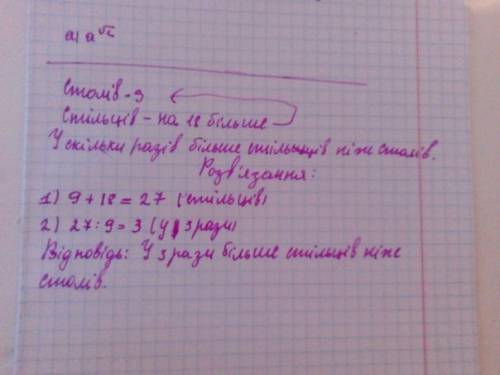 а) a√
Столів - 9
Стільців - на 18 більше
У скільки разів більше стільців ніж столів.
Розв'язання:
1) 9 + 18 = 27 (стільців)
2) 27 : 9 = 3 (у 3 рази)
Відповідь: У 3 рази більше стільців ніж
столів.